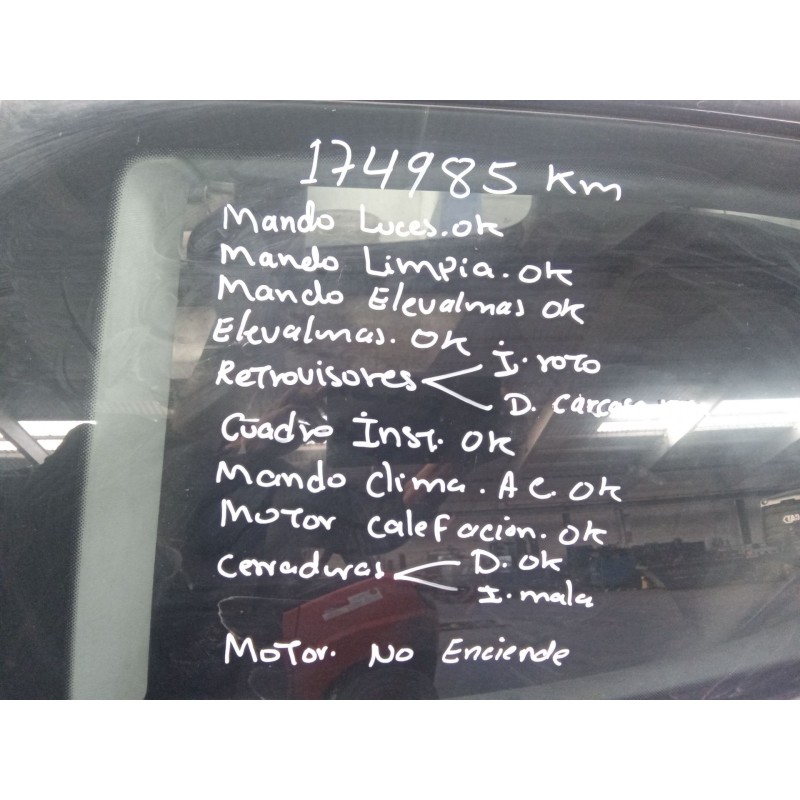 174985 Km
Mando Luces. ok
Mando Limpia. ok
Mando Elevalunas ok
Elevalunas. ok
Retrovisores
I. roto
D. carcasa
Cuadro Inst. ok
Mando Clima. A C. ok
Motor calefacion. ok
Cerraduras
D. ok
I. mala
Motor. No Enciende